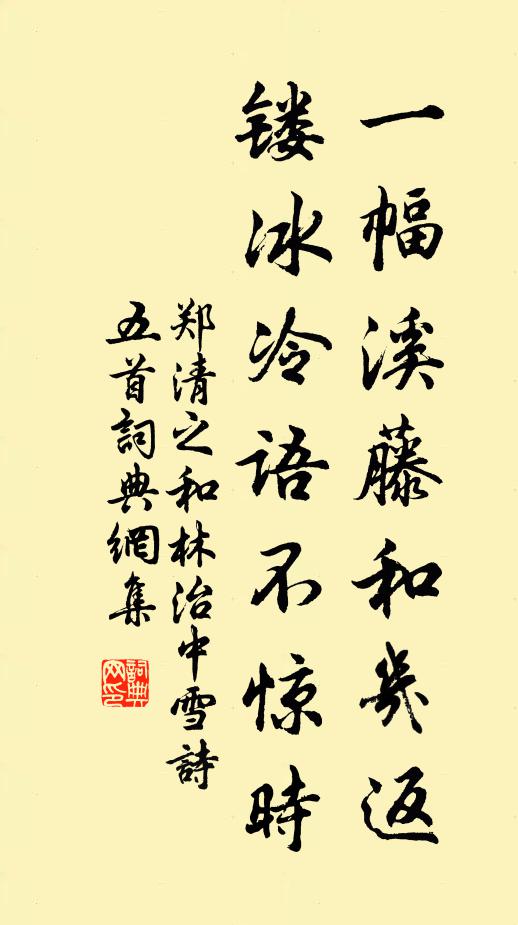 一幅溪藤和幾返
镂冰冷语不惊時
郑清之和林治中雪詩
五首詞典網集
詞典网印